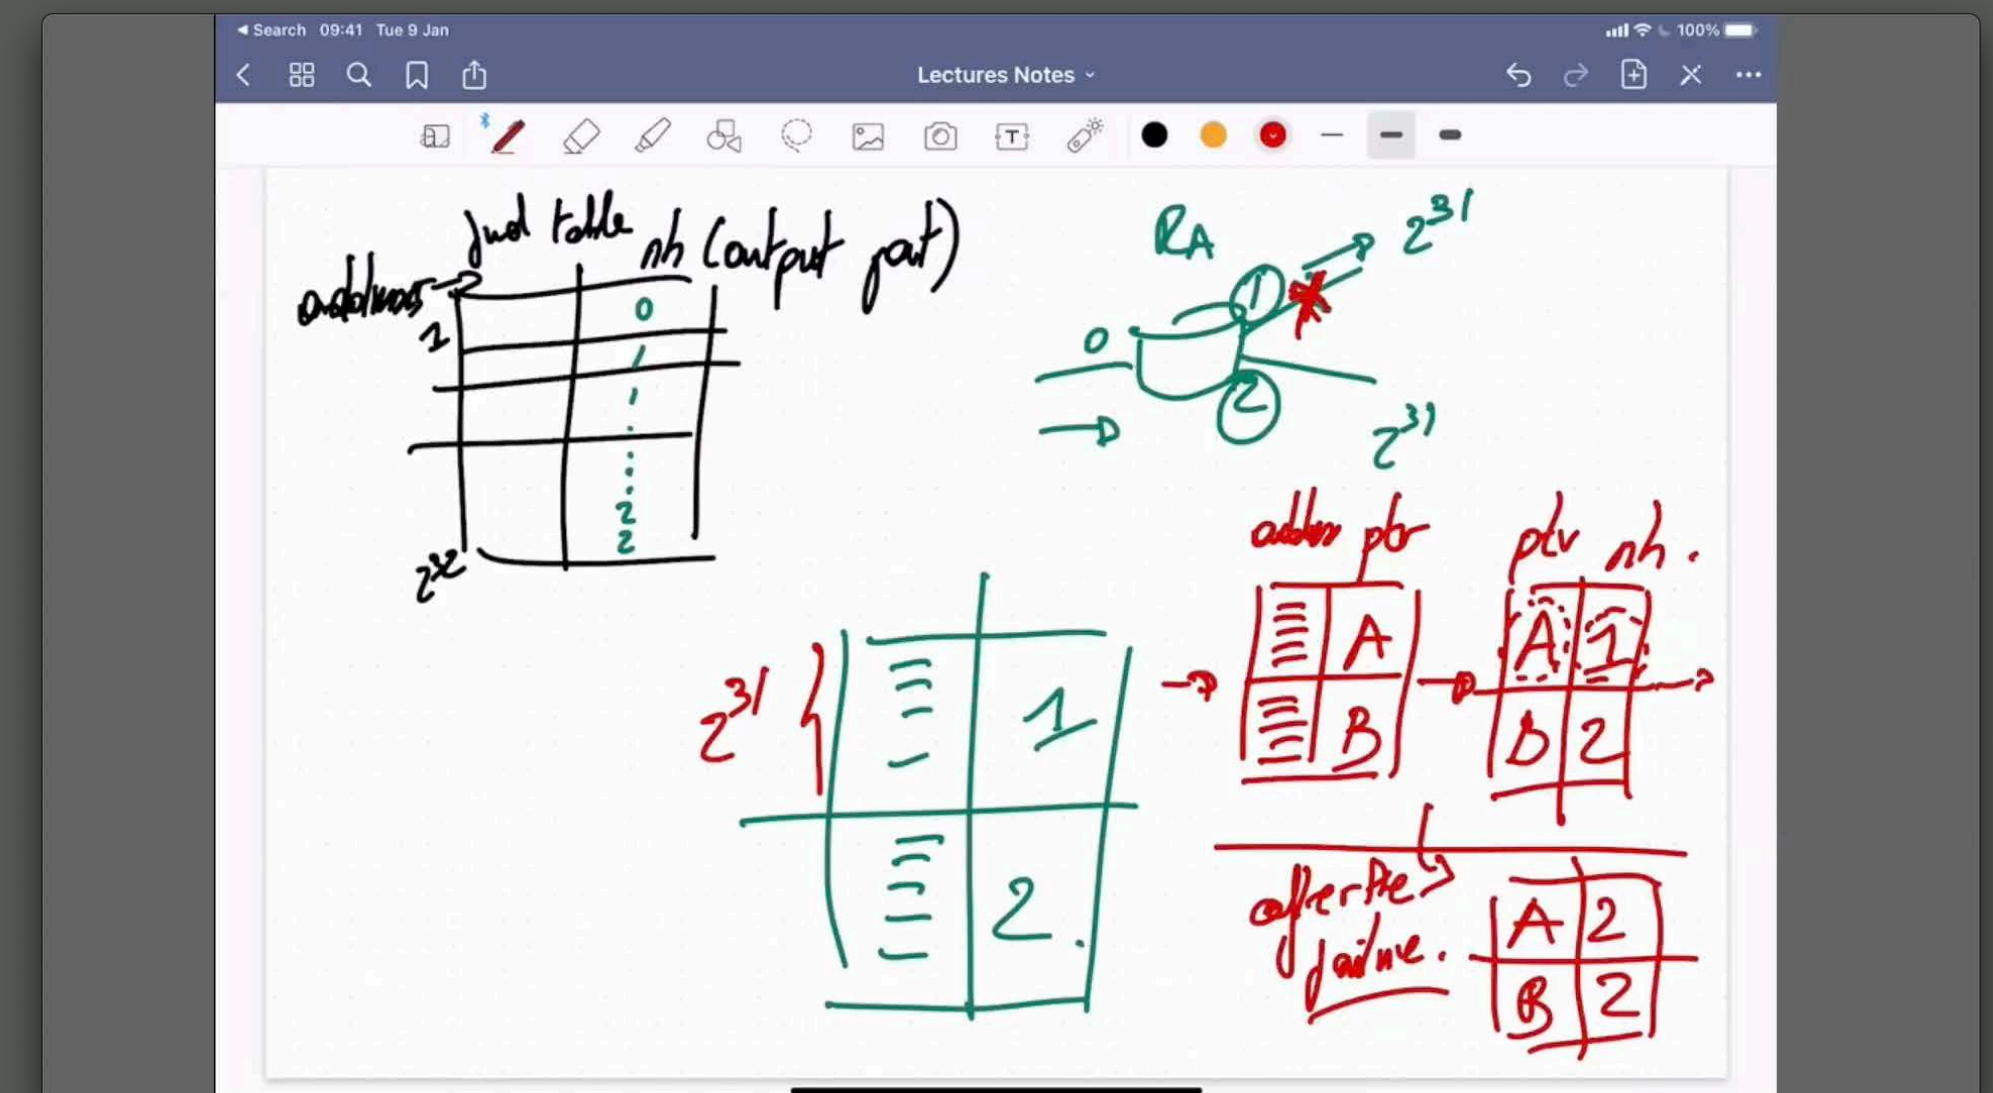 Search 09:41 Tue 9 Jan
100%
Lectures Notes
T
fwd table
nh (output port)
address
1
0
1
1
2
2
2^32
RA
1
2^31
0
2
2^31
2^31
1
2
addr ptr
A
B
ptr nh.
A 1
B 2
after the
failure.
A 2
B 2